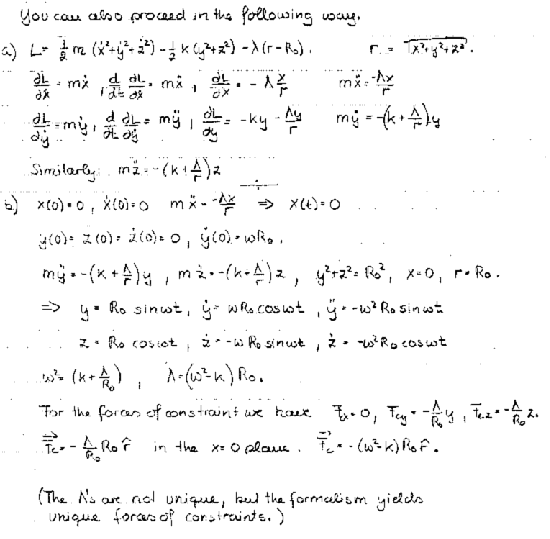 You can also proceed in the following way.
a) L = 1/2 m (ẋ²+ẏ²+ż²) - 1/2 k (y²+z²) - λ(r - R₀). r = √(x²+y²+z²).
∂L/∂ẋ = mẋ , d/dt ∂L/∂ẋ = mẍ , ∂L/∂x = - λ x/r mẍ = -λx/r
∂L/∂ẏ = mẏ , d/dt ∂L/∂ẏ = mÿ , ∂L/∂y = -ky - λy/r mÿ = -(k + λ/r) y
Similarly: m z̈ = -(k + λ/r) z
b) x(0) = 0 , ẋ(0) = 0 mẍ = -λx/r ⇒ x(t) = 0
y(0) = z(0) = ż(0) = 0 , ẏ(0) = ωR₀ .
mÿ = -(k + λ/r) y , m z̈ = -(k + λ/r) z , y²+z² = R₀² , x=0 , r = R₀ .
⇒ y = R₀ sin ωt , ẏ = ωR₀ cos ωt , ÿ = -ω² R₀ sin ωt
z = R₀ cos ωt , ż = -ω R₀ sin ωt , z̈ = -ω² R₀ cos ωt
ω² = (k + λ/R₀) , λ = (ω² - k) R₀ .
For the forces of constraint we have F_cx = 0 , F_cy = -λ/R₀ y , F_cz = -λ/R₀ z.
F⃗_c = - λ/R₀ R₀ r̂ in the x = 0 plane . F⃗_c = - (ω² - k) R₀ r̂ .
(The λ's are not unique, but the formalism yields
unique forces of constraints.)